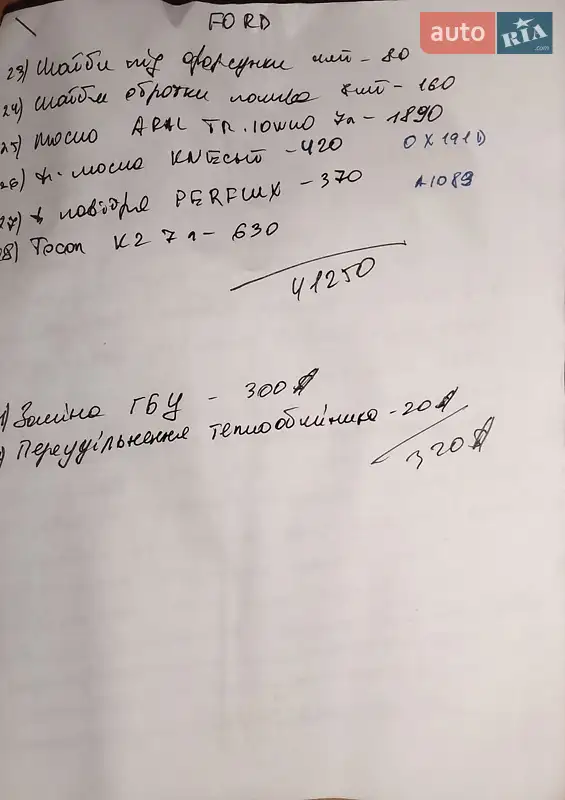 FORD
auto RIA .com
23) Шайби під форсунки 4шт - 80
24) Шайби обротки палива 8шт - 160
25) Масло ARAL TR. 10W40 7л - 1890
26) ф. масла KNECHT - 420 OX191D
27) ф повітря PERFLUX - 370 A1089
28) Тосол K2 7л - 630
41250
1) Заміна ГБЦ - 300$
) Переущільнення теплообмінника - 20$
320$